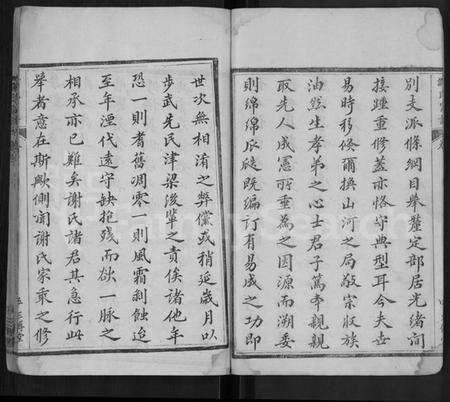 別支派條綱目舉釐定部居光緒間
接踵重修蓋亦恪守典型耳今夫世
易時移倏爾換山河之局敬宗收族
油然生孝弟之心士君子篤帝親親
取先人成憲所重為之因源而溯委
則綿綿瓜瓞既編訂有易成之功即
世次無相淆之弊儻或稍延歲月以
步武先民津梁後輩之責俟諸他年
恐一則耆舊凋零一則風霜剝蝕迨
至年湮代遠守缺抱殘而欲一脉之
相承亦已難矣謝氏諸君其急行此
舉者意在斯歟側聞謝氏家乘之修